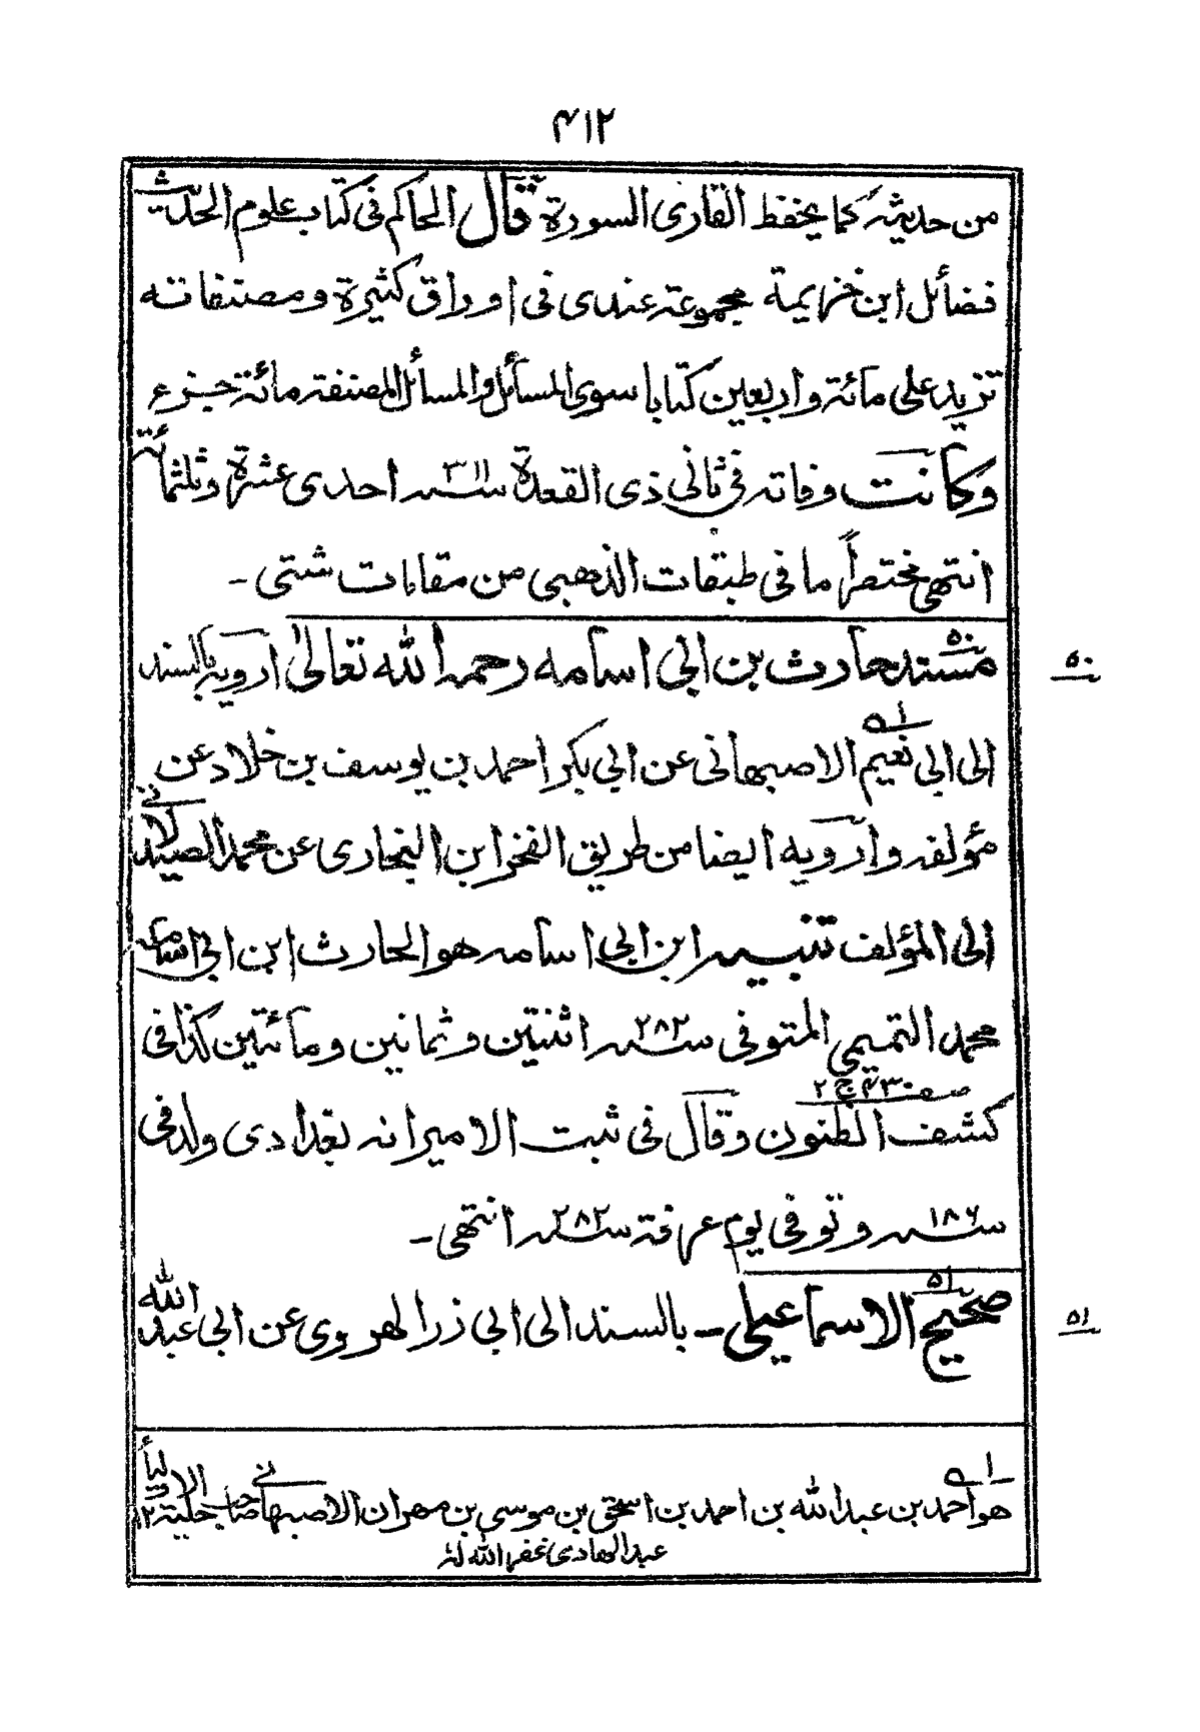 ۴۱۲
من حديثه كما يحفظ القارى السورة قال الحاكم فى كتاب علوم الحديث
فضائل ابن خزيمة مجموعة عندى فى اوراق كثيرة ومصنفاته
تزيد على مائة واربعين كتابا سوى المسائل والمسائل المصنفة مائة جزء
وكانت وفاته فى ثانى ذى القعدة سنة ۳۱۱ احدى عشرة وثلثمائة
انتهى مختصراً ما فى طبقات الذهبى من مقامات شتى ـ
۵۰ مسند حارث بن ابى اسامه رحمه الله تعالىٰ ارويه بالسند
۵۰
الى ابى نعيم ۱ الاصبهانى عن ابى بكر احمد بن يوسف بن خلاد عن
مؤلفه وارويه ايضا من طريق الفخر ابن البخارى عن محمد الصيدلانى
الى المؤلف تنبيه ابن ابى اسامه هو الحارث ابن ابى اسامه
محمد التميمى المتوفى سنة ۲۸۲ اثنتين وثمانين ومائتين كذا فى
كشف الظنون صـ ۴۳۰ ج ۲ وقال فى ثبت الامير انه بغدادى ولد فى
سنة ۱۸۶ وتوفى يوم عرفة سنة ۲۸۲ انتهى ـ
۵۱ صحيح الاسماعيلى ـ بالسند الى ابى ذر الهروى عن ابى عبد الله
۵۱
۱ هو احمد بن عبد الله بن احمد بن اسحق بن موسى بن مهران الاصبهانى صاحب حلية الاوليأ ۱۲
عبد الهادى غفر الله لهٗ